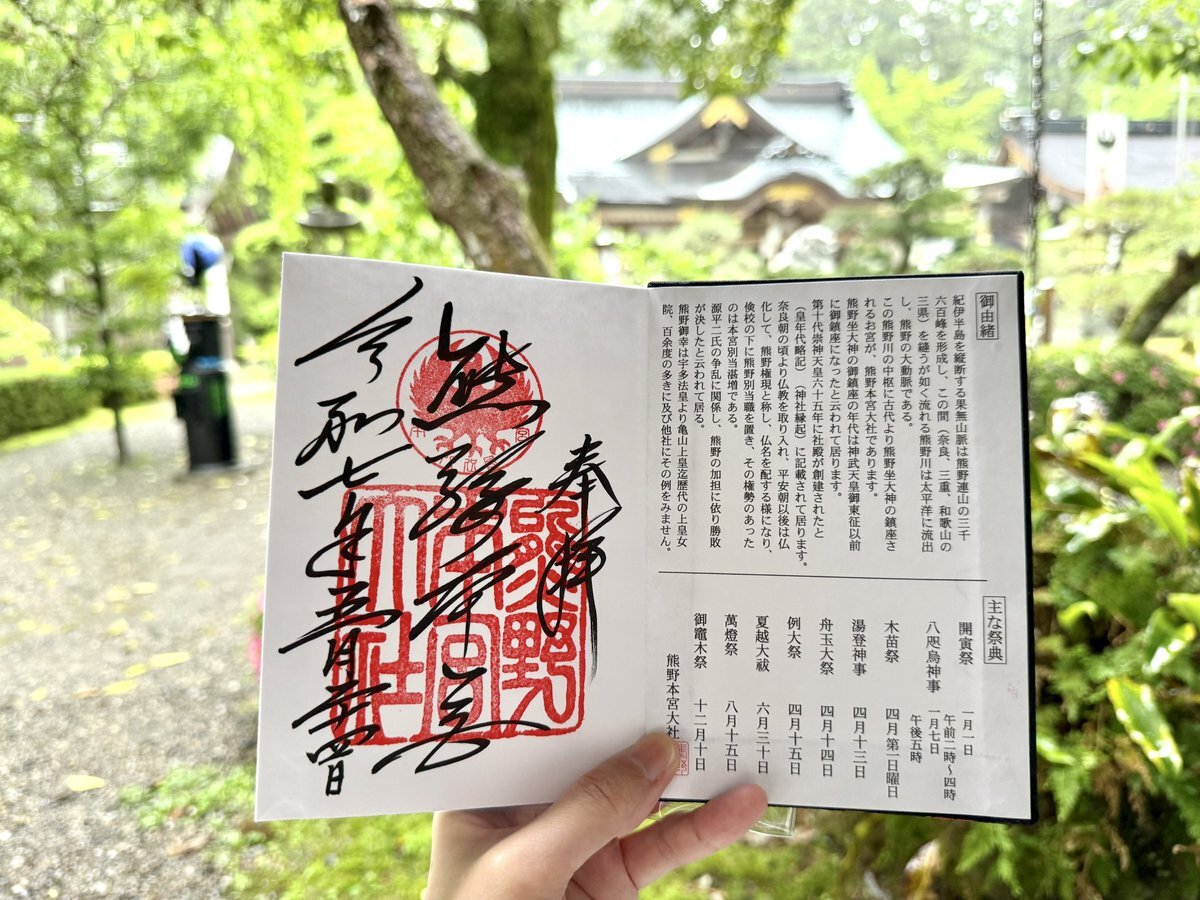 御由緒
紀伊半島を縦断する果無山脈は熊野連山の三千
六百峰を形成し、この間(奈良、三重、和歌山の
三県)を縫うが如く流れる熊野川は太平洋に流出
し、熊野の大動脈である。
この熊野川の中枢に古代より熊野坐大神の鎮座さ
れるお宮が、熊野本宮大社であります。
熊野坐大神の御鎮座の年代は神武天皇御東征以前
に御鎮座になったと云われて居ります。
第十代崇神天皇六十五年に社殿が創建されたと
(皇年代略記)(神社縁起)に記載されて居ります。
奈良朝の頃より仏教を取り入れ、平安朝以後は仏
化して、熊野権現と称し、仏名を配する様になり、
倹校の下に熊野別当職を置き、その権勢のあった
のは本宮別当湛増である。
源平二氏の争乱に関係し、熊野の加担に依り勝敗
が決したと云われて居る。
熊野御幸は宇多法皇より亀山上皇迄歴代の上皇女
院、百余度の多きに及び他社にその例をみません。
主な祭典
開寅祭 一月一日
午前二時~四時
八咫烏神事 一月七日
午後五時
木苗祭 四月第一日曜日
湯登神事 四月十三日
舟玉大祭 四月十四日
例大祭 四月十五日
夏越大祓 六月三十日
萬燈祭 八月十五日
御竈木祭 十二月十日
熊野本宮大社
奉拝
熊野本宮
熊野
本宮
大社
令和七年五月廿四日